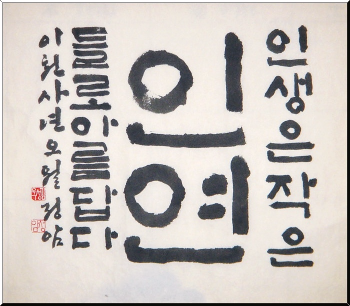 인생은작은
인연
들로아름답다
이천사년오월정암